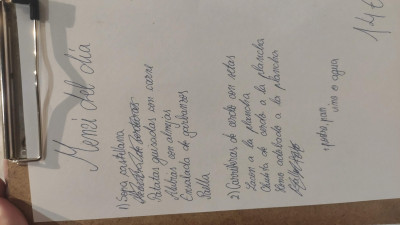 Menú del día
1) Sopa castellana
Patatas guisadas con carne
Alubias con almejas
Ensalada de garbanzos
Paella
2) Carrilleras de cerdo con setas
a la plancha
Chuleta de cerdo a la plancha
Lomo adobado a la plancha
+ postre, pan
vino o agua
14€